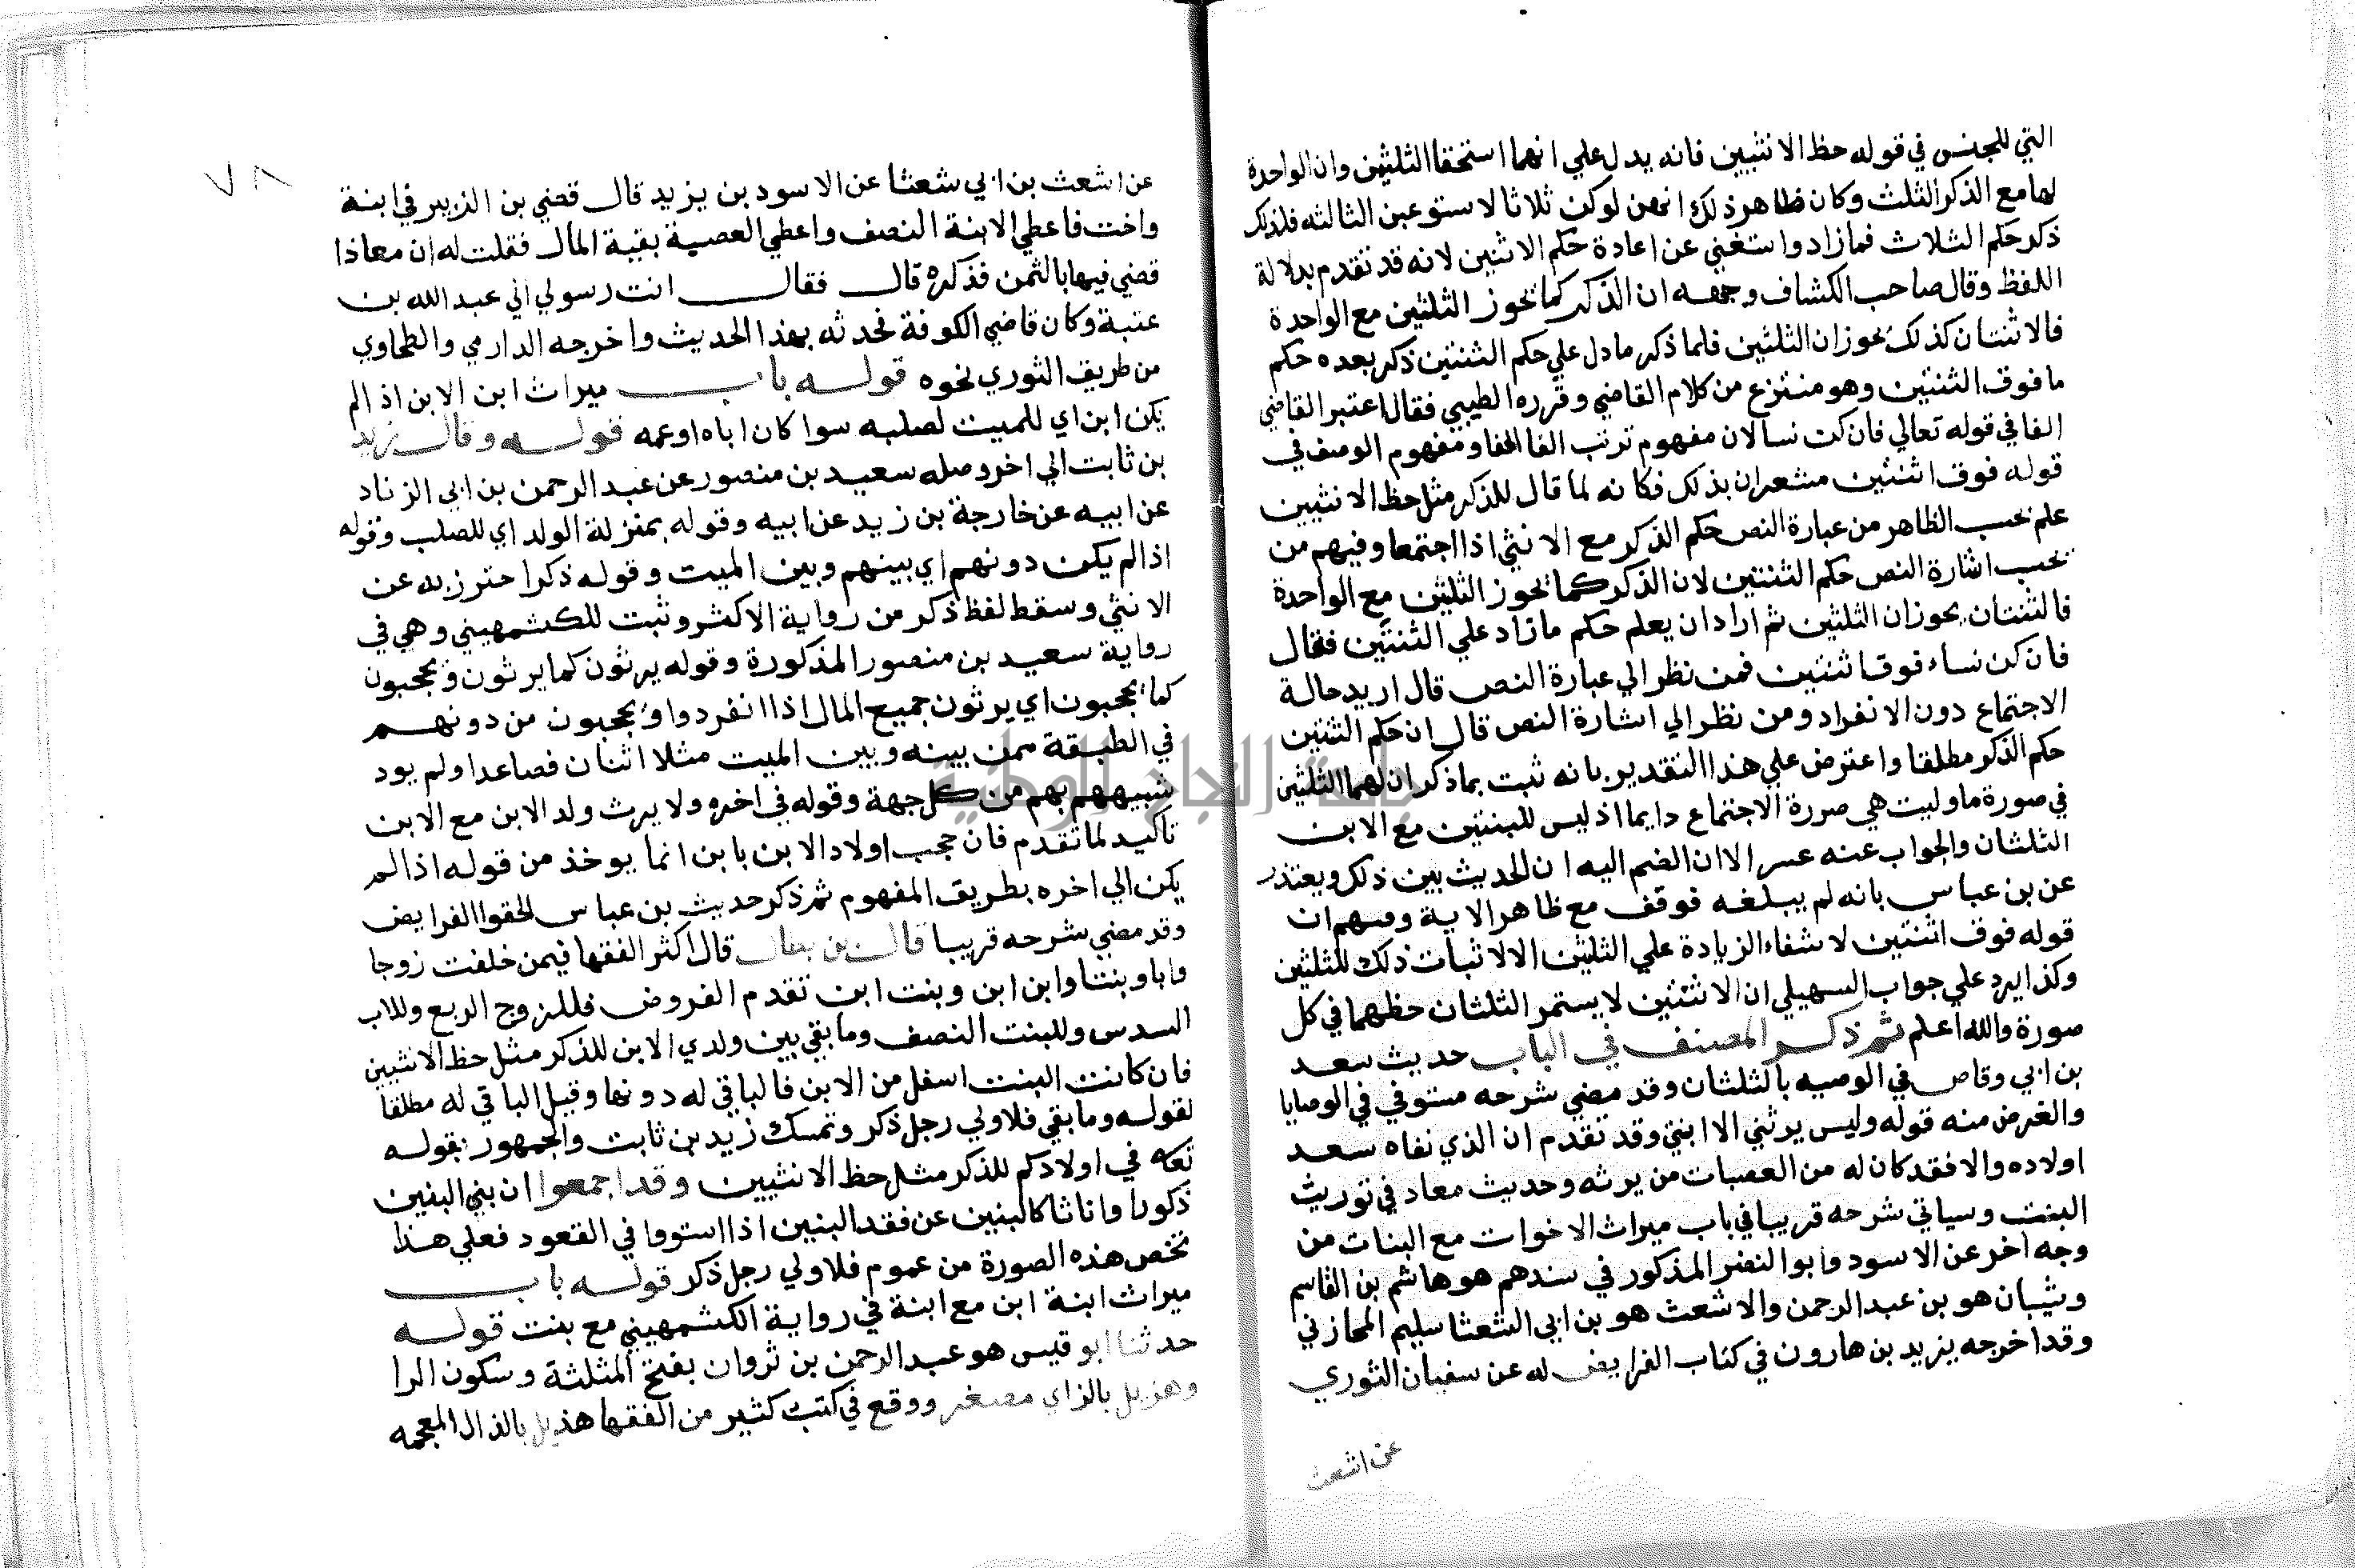 التي للجنس في قوله حظ الانثيين فانه يدل علي انهما استحقا الثلثين وان الواحدة
لها مع الذكر الثلث وكان ظاهر ذلك انهن لوكن ثلاثا لاستوعبن الثالثه فلذلك
ذكر حكم الثلاث فما زاد واستغني عن اعادة حكم الاثنين لانه قد تقدم بدلالة
اللفظ وقال صاحب الكشاف وجهه ان الذكر كما يحوز الثلثين مع الواحدة
فالاثنتان كذلك يحوزان الثلثين فلما ذكر ما دل علي حكم الثنتين ذكر بعده حكم
ما فوق الثنتين وهو منتزع من كلام القاضي وقرره الطيبي فقال اعتبر القاضي
الفا في قوله تعالي فان كن نسا لان مفهوم ترتب الفا الحفا ومفهوم الوصف في
قوله فوق اثنتين مشعران بذلك فكانه لما قال للذكر مثل حظ الانثيين
علم بحسب الظاهر من عبارة النص حكم الذكر مع الانثي اذا اجتمعا وفهم من
بحسب اشارة النص حكم الثنتين لان الذكر كما يحوز الثلثين مع الواحدة
فالثنتان يحوزان الثلثين ثم اراد ان يعلم حكم ما زاد علي الثنتين فقال
فان كن نساء فوق اثنتين فمن نظر الي عبارة النص قال اريد حالة
الاجتماع دون الانفراد ومن نظر الي اشارة النص قال ان حكم الثنتين
حكم الذكر مطلقا واعترض علي هذا التقدير بانه ثبت بما ذكر ان لهما الثلثين
في صورة ما وليت هي صورة الاجتماع دايما اذ ليس للبنتين مع الابن
الثلثان والجواب عنه عسر الا ان الضم اليه ان الحديث بين ذلك ويعتذر
عن بن عباس بانه لم يبلغه فوقف مع ظاهر الاية وفهم ان
قوله فوق اثنتين لانتفاء الزيادة علي الثلثين الا لاثبات ذلك للثلثين
وكذا يرد علي جواب السهيلي ان الاثنتين لا يستمر الثلثان حظهما في كل
صورة والله اعلم ثم ذكر المصنف في الباب حديث سعد
بن ابي وقاص في الوصيه بالثلثان وقد مضي شرحه مستوفي في الوصايا
والغرض منه قوله وليس يرثني الا ابنتي وقد تقدم ان الذي نفاه سعد
اولاده والا فقد كان له من العصبات من يرثه وحديث معاد في توريث
البنت وسياتي شرحه قريبا في باب ميراث الاخوات مع البنات من
وجه اخر عن الاسود وابو النضر المذكور في سندهم هو هاشم بن القاسم
وشيبان هو بن عبد الرحمن والاشعث هو بن ابي الشعثا سليم المحاربي
وقد اخرجه يزيد بن هارون في كتاب الفرايض له عن سفيان الثوري
عن اشعث
٧٨
عن اشعث بن ابي شعثا عن الاسود بن يزيد قال قضي بن الزبير في ابنة
واخت فاعطي الابنة النصف واعطي العصبة بقية المال فقلت له ان معاذا
قضي فيها باليمن فذكره قال فقال انت رسولي الي عبد الله بن
عتبة وكان قاضي الكوفة فحدثه بهذا الحديث واخرجه الدارمي والطحاوي
من طريق الثوري نحوه قوله باب ميراث ابن الابن اذا لم
يكن ابن اي للميت لصلبه سوا كان اباه اوعمه قوله وقال زيد
بن ثابت الي اخره وصله سعيد بن منصور عن عبد الرحمن بن ابي الزناد
عن ابيه عن خارجة بن زيد عن ابيه وقوله بمنزلة الولد اي للصلب وقوله
اذا لم يكن دونهم اي بينهم وبين الميت وقوله ذكر احترز به عن
الانثي وسقط لفظ ذكر من رواية الاكثر وثبت للكشمهيني وهي في
رواية سعيد بن منصور المذكورة وقوله يرثون كما يرثون ويحجبون
كما يحجبون اي يرثون جميع المال اذا انفردوا ويحجبون من دونهم
في الطبقة ممن بينه وبين الميت مثلا اثنان فصاعدا ولم يود
شبيههم بهم من كل جهة وقوله في اخره ولا يرث ولد الابن مع الابن
تاكيد لما تقدم فان حجب اولاد الابن بابن انما يوخذ من قوله اذا لم
يكن الي اخره بطريق المفهوم ثم ذكر حديث بن عباس الحقوا الفرايض
وقد مضي شرحه قريبا قال بن بطال قال اكثر الفقها فيمن خلفت زوجا
وابا وبنتا وابن ابن وبنت ابن تقدم الفروض فللزوج الربع وللاب
السدس وللبنت النصف وما بقي بين ولدي الابن للذكر مثل حظ الانثيين
فان كانت البنت اسفل من الابن فالباقي له دونها وقيل الباقي له مطلقا
لقوله وما بقي فلاولي رجل ذكر وتمسك زيد بن ثابت والجمهور بقوله
تعه في اولادكم للذكر مثل حظ الانثيين وقد اجمعوا ان بني البنين
ذكورا واناثا كالبنين عن فقد البنين اذا استووا في القعود فعلي هذا
تخص هذه الصورة من عموم فلاولي رجل ذكر قوله باب
ميراث ابنة ابن مع ابنة في رواية الكشمهيني مع بنت قوله
حدثنا ابو قيس هو عبد الرحمن بن ثروان بفتح المثلثة وسكون الرا
وهزيل بالزاي مصغر ووقع في كتب كثير من الفقها هذيل بالذال المعجمه
جامعة النجاح الوطنية